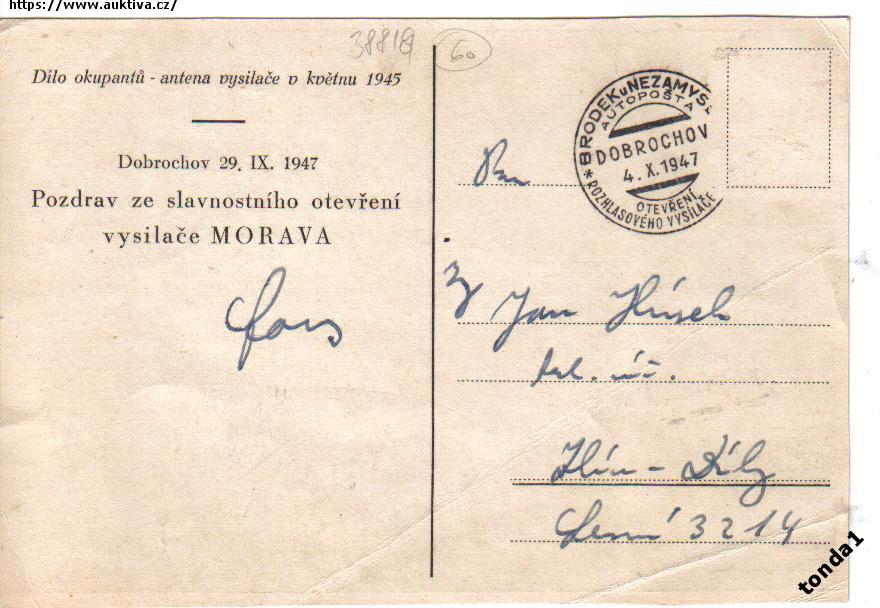 https://www.auktiva.cz/
38818
60
Dílo okupantů - antena vysilače v květnu 1945
Dobrochov 29. IX. 1947
Pozdrav ze slavnostního otevření
vysilače MORAVA
BRODEK u NEZAMYSL
AUTOPOŠTA
DOBROCHOV
4.X.1947
OTEVŘENÍ
ROZHLASOVÉHO VYSÍLAČE
Pan
Jan
Zlín -
Lesní 3214
tonda1